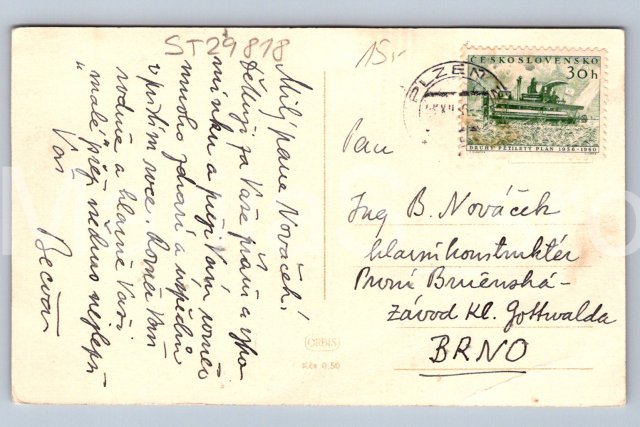 ST29818
15,-
Milý pane Nováček!
Děkuji za Vaše přání a vzpo
mínku a přeji Vám rovněž
mnoho zdraví a úspěchů
v příštím roce. Rovněž Vaší
rodině a hlavně Vaší
"malé" přeji všechno nejlepší
Váš
Bečvář
ČESKOSLOVENSKO
30h
DRUHÝ PĚTILETÝ PLÁN 1956-1960
PLZEŇ
XII
Pan
Ing B. Nováček
hlavní konstruktér
První Brněnská-
závod Kl. Gottwalda
BRNO
ORBIS
Kčs 0.50